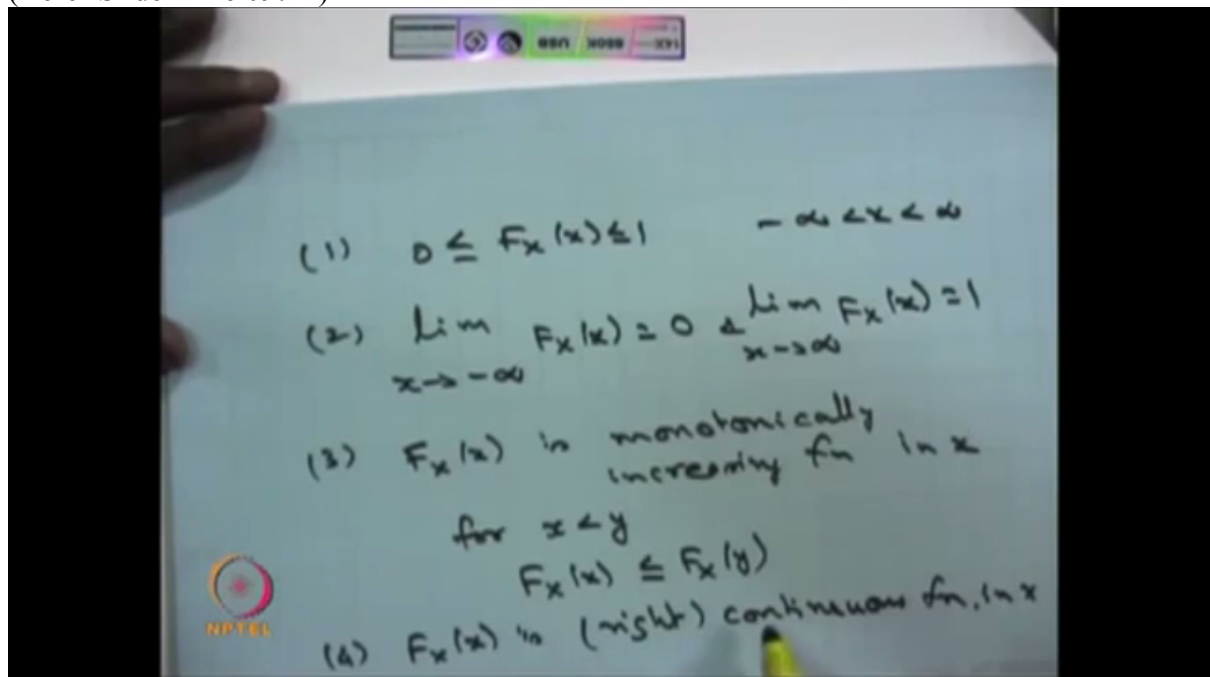 (1) 0 ≤ Fx(x) ≤ 1 - ∞ < x < ∞
(2) lim Fx(x) = 0 & lim Fx(x) = 1
x → -∞ x → ∞
(3) Fx(x) is monotonically
increasing fn in x
for x < y
Fx(x) ≤ Fx(y)
(4) Fx(x) is (right) continuous fn. in x
NPTEL